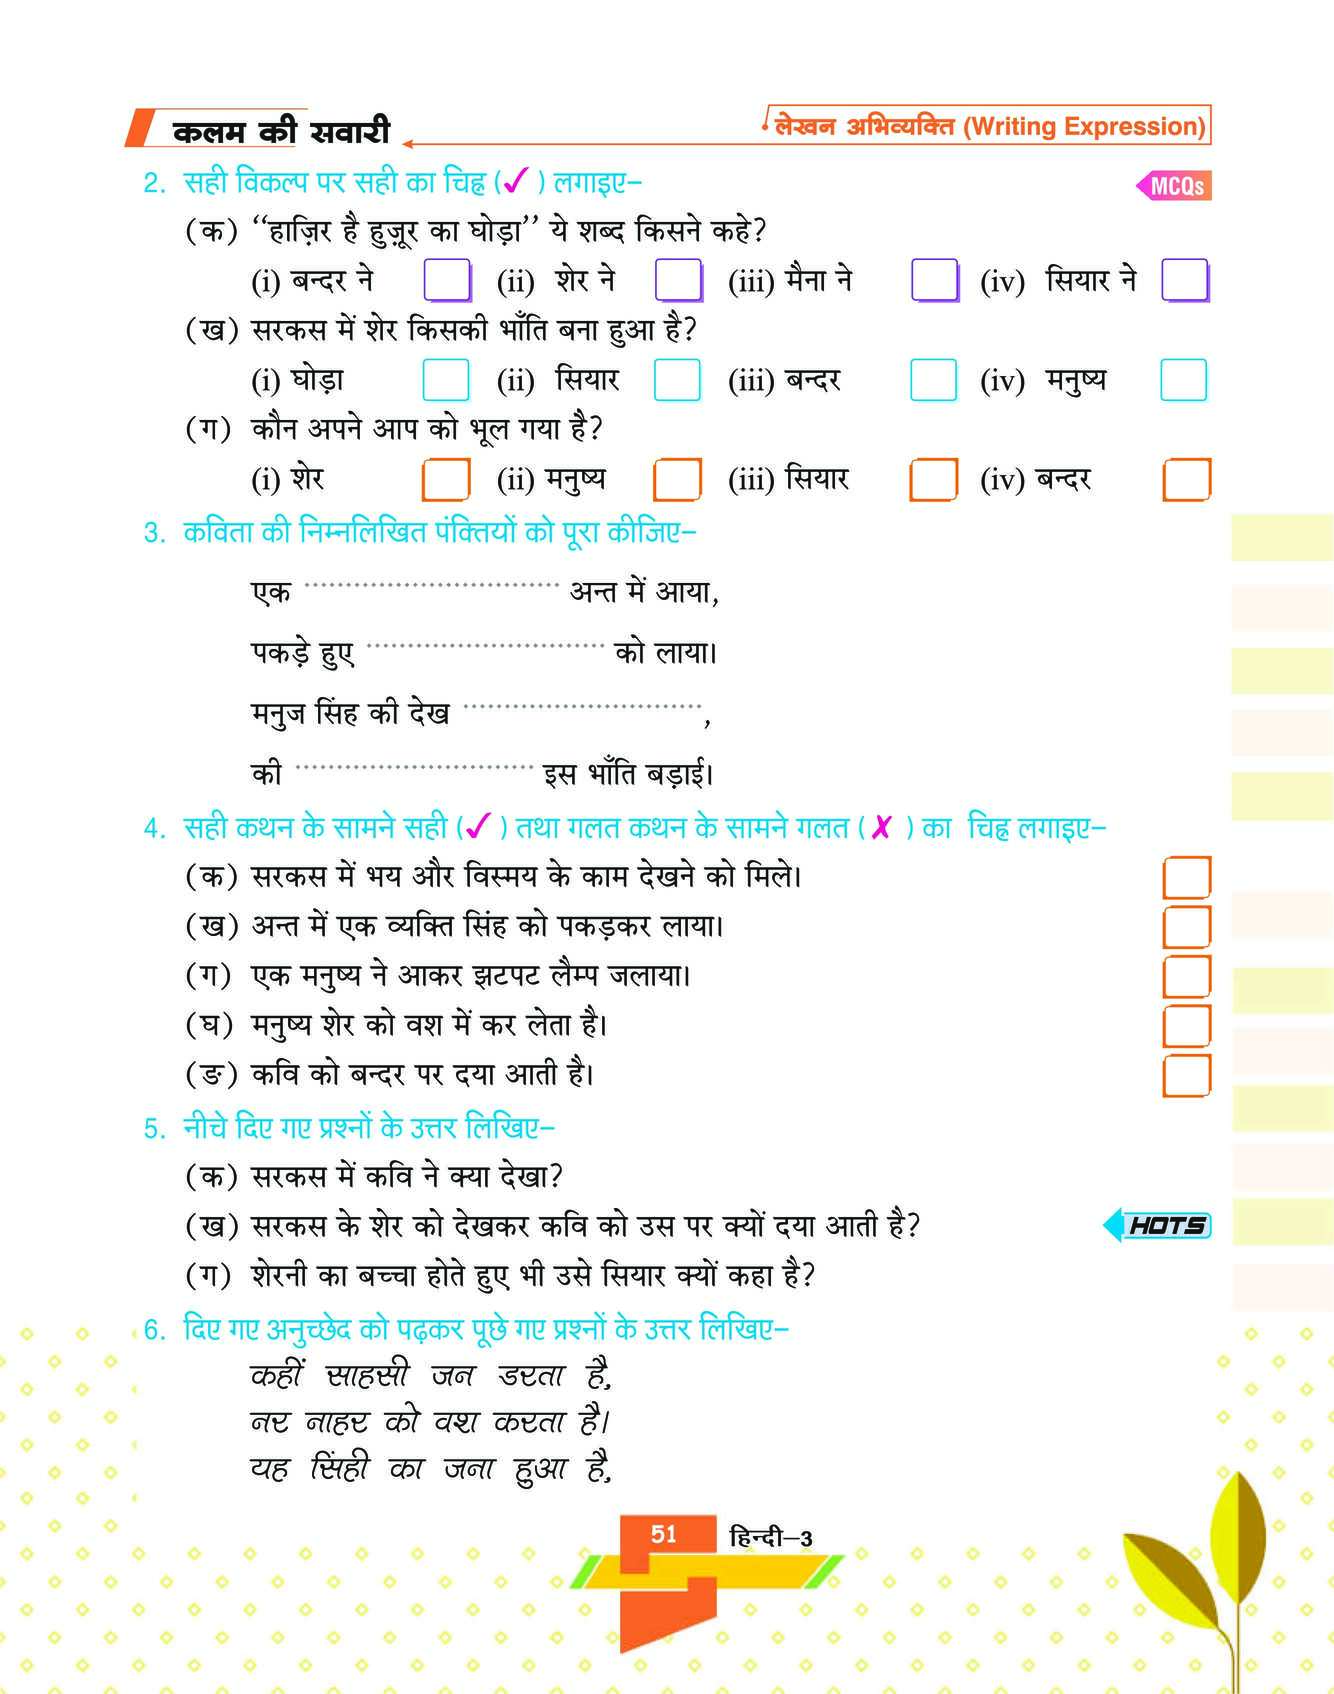 कलम की सवारी
लेखन अभिव्यक्ति (Writing Expression)
2. सही विकल्प पर सही का चिह्न (✓) लगाइए– MCQs
(क) ‘‘हाज़िर है हुज़ूर का घोड़ा’’ ये शब्द किसने कहे?
(i) बन्दर ने (ii) शेर ने (iii) मैना ने (iv) सियार ने
(ख) सरकस में शेर किसकी भाँति बना हुआ है?
(i) घोड़ा (ii) सियार (iii) बन्दर (iv) मनुष्य
(ग) कौन अपने आप को भूल गया है?
(i) शेर (ii) मनुष्य (iii) सियार (iv) बन्दर
3. कविता की निम्नलिखित पंक्तियों को पूरा कीजिए–
एक ............................... अन्त में आया,
पकड़े हुए ............................. को लाया।
मनुज सिंह की देख .............................,
की ............................. इस भाँति बड़ाई।
4. सही कथन के सामने सही (✓) तथा गलत कथन के सामने गलत (✗) का चिह्न लगाइए–
(क) सरकस में भय और विस्मय के काम देखने को मिले।
(ख) अन्त में एक व्यक्ति सिंह को पकड़कर लाया।
(ग) एक मनुष्य ने आकर झटपट लैम्प जलाया।
(घ) मनुष्य शेर को वश में कर लेता है।
(ङ) कवि को बन्दर पर दया आती है।
5. नीचे दिए गए प्रश्नों के उत्तर लिखिए–
(क) सरकस में कवि ने क्या देखा?
(ख) सरकस के शेर को देखकर कवि को उस पर क्यों दया आती है? HOTS
(ग) शेरनी का बच्चा होते हुए भी उसे सियार क्यों कहा है?
6. दिए गए अनुच्छेद को पढ़कर पूछे गए प्रश्नों के उत्तर लिखिए–
कहीं साहसी जन डरता है,
नर नाहर को वश करता है।
यह सिंही का जना हुआ है,
51 हिन्दी–3